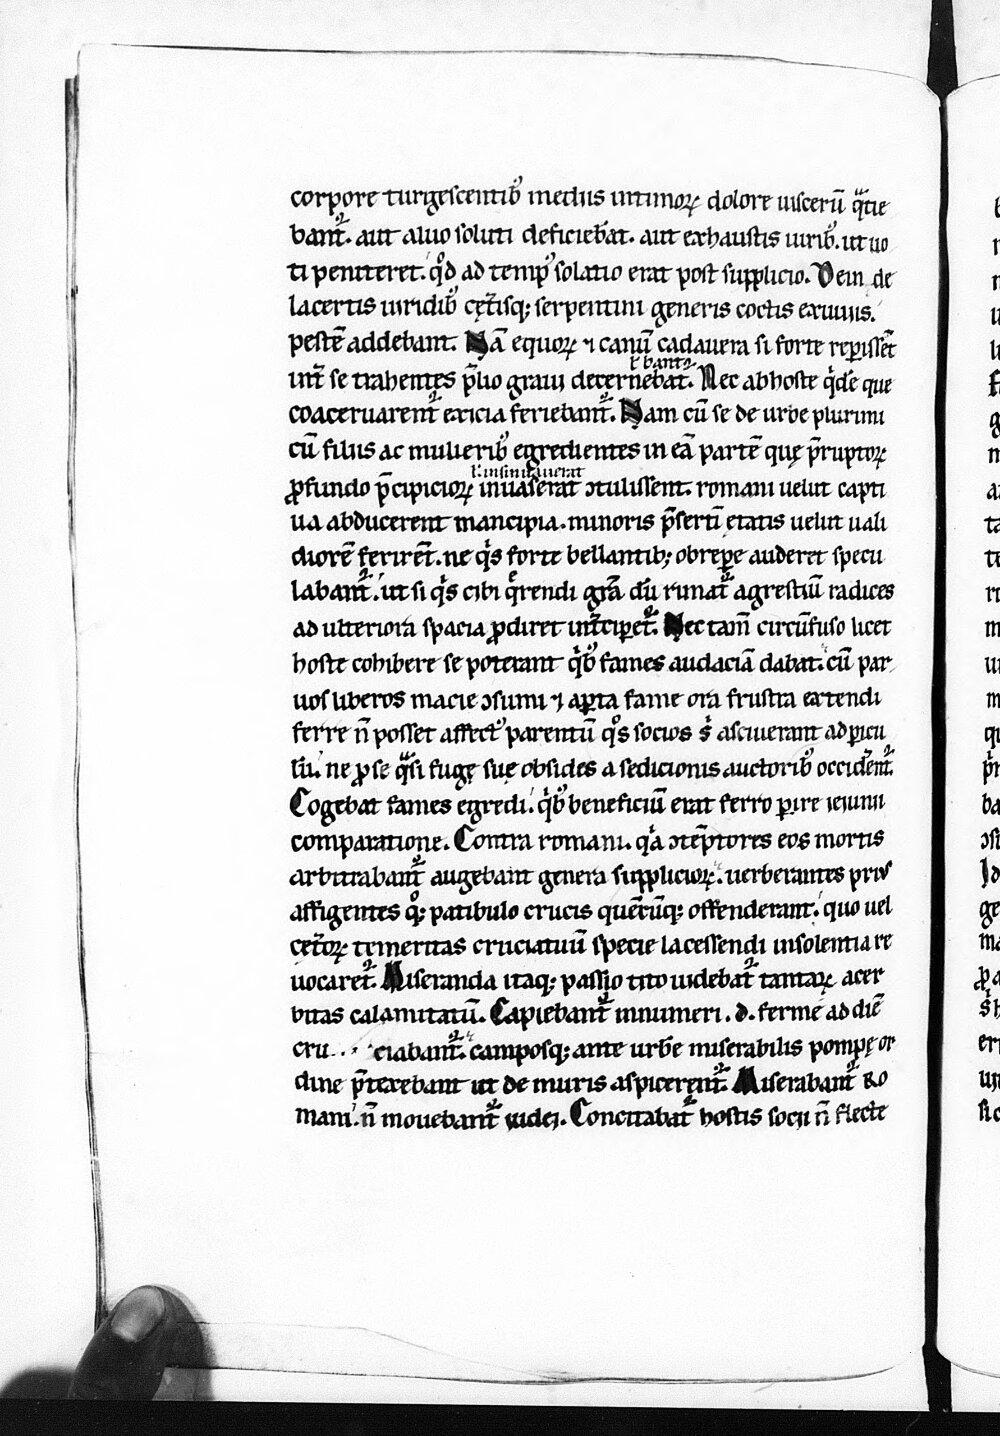 corpore turgescentib᷒ mediis intimoꝝ dolore uisceꝝ̄ qͣtie
bant᷑. aut aluo soluti deficieb̄at. aut exhaustis uirib᷒. ut uo
ti peniteret. qͦd ad temp᷒ solatio erat post supplicio. Dein de
lacertis uiridib᷒ cęt̄isq; serpentini generis coctis exuuiis.
pestē addebant. Nā equoꝝ ⁊ canū cadauera si forte rep̱issēt
int̄ se trahentes p̄lio graui decernebat᷑. Nec ab hoste qͥdē que
ł bant᷑
coaceruarent᷑ exicia feriebant᷑. Nam cū se de urbe plurimi
cū filiis ac mulierib᷒ egredientes in eā partē quę p̄ruptoꝝ
ł insinuauerat
ꝓfundo p̄cipicioꝝ inuaserat ↄtulissent. romani uelut capti
ua abducerent mancipia. minoris p̄sertī ętatis uelut uali
diorē ferirēt. ne qͥs forte bellantib; obrep̱e auderet specu
labant᷑. ut si qͥs cibi qͥrendi grā dū rimat᷑ agrestiū radices
ad ulteriora spacia ꝓdiret int̄cip̱et᷑. Nec tam̄ circūfuso licet
hoste cohibere se poterant qͥb᷒ fames audaciā dabat. cū par
uos liberos macie ↄsumi ⁊ ap̱ta fame ora frustra extendi
ferre n̄ posset affect᷒ parentū qͦs socios sͥ asciuerant ad p̱icu
lū. ne ꝓ se qͣsi fugę suę obsides a sedicionis auctorib᷒ occidēnt᷑.
Cogebat fames egredi. qͥb᷒ beneficiū erat ferro p̱ire ieiunii
comparatione. Contra romani. qͥa ↄtēptores eos mortis
arbitrabant᷑ augebant genera supplicioꝝ. uerberantes pri᷒
affigentes qͦ; patibulo crucis quēcūq; offenderant. quo uel
cęt̄oꝝ temeritas cruciatuū specie lacessendi insolentia re
uocaret᷑. Miseranda itaq; passio tito uidebat᷑ tantaꝝ acer
bitas calamitatū. Capiebant᷑ innumeri. d. ferme ad diē
cru . . . ciabant᷑. camposq; ante urbē miserabilis pompę or
dine p̄texebant ut de muris aspicerent᷑. Miserabant᷑ Ro
mani. n̄ mouebant᷑ iudei. Concitabat᷑ hostis socii n̄ flecte